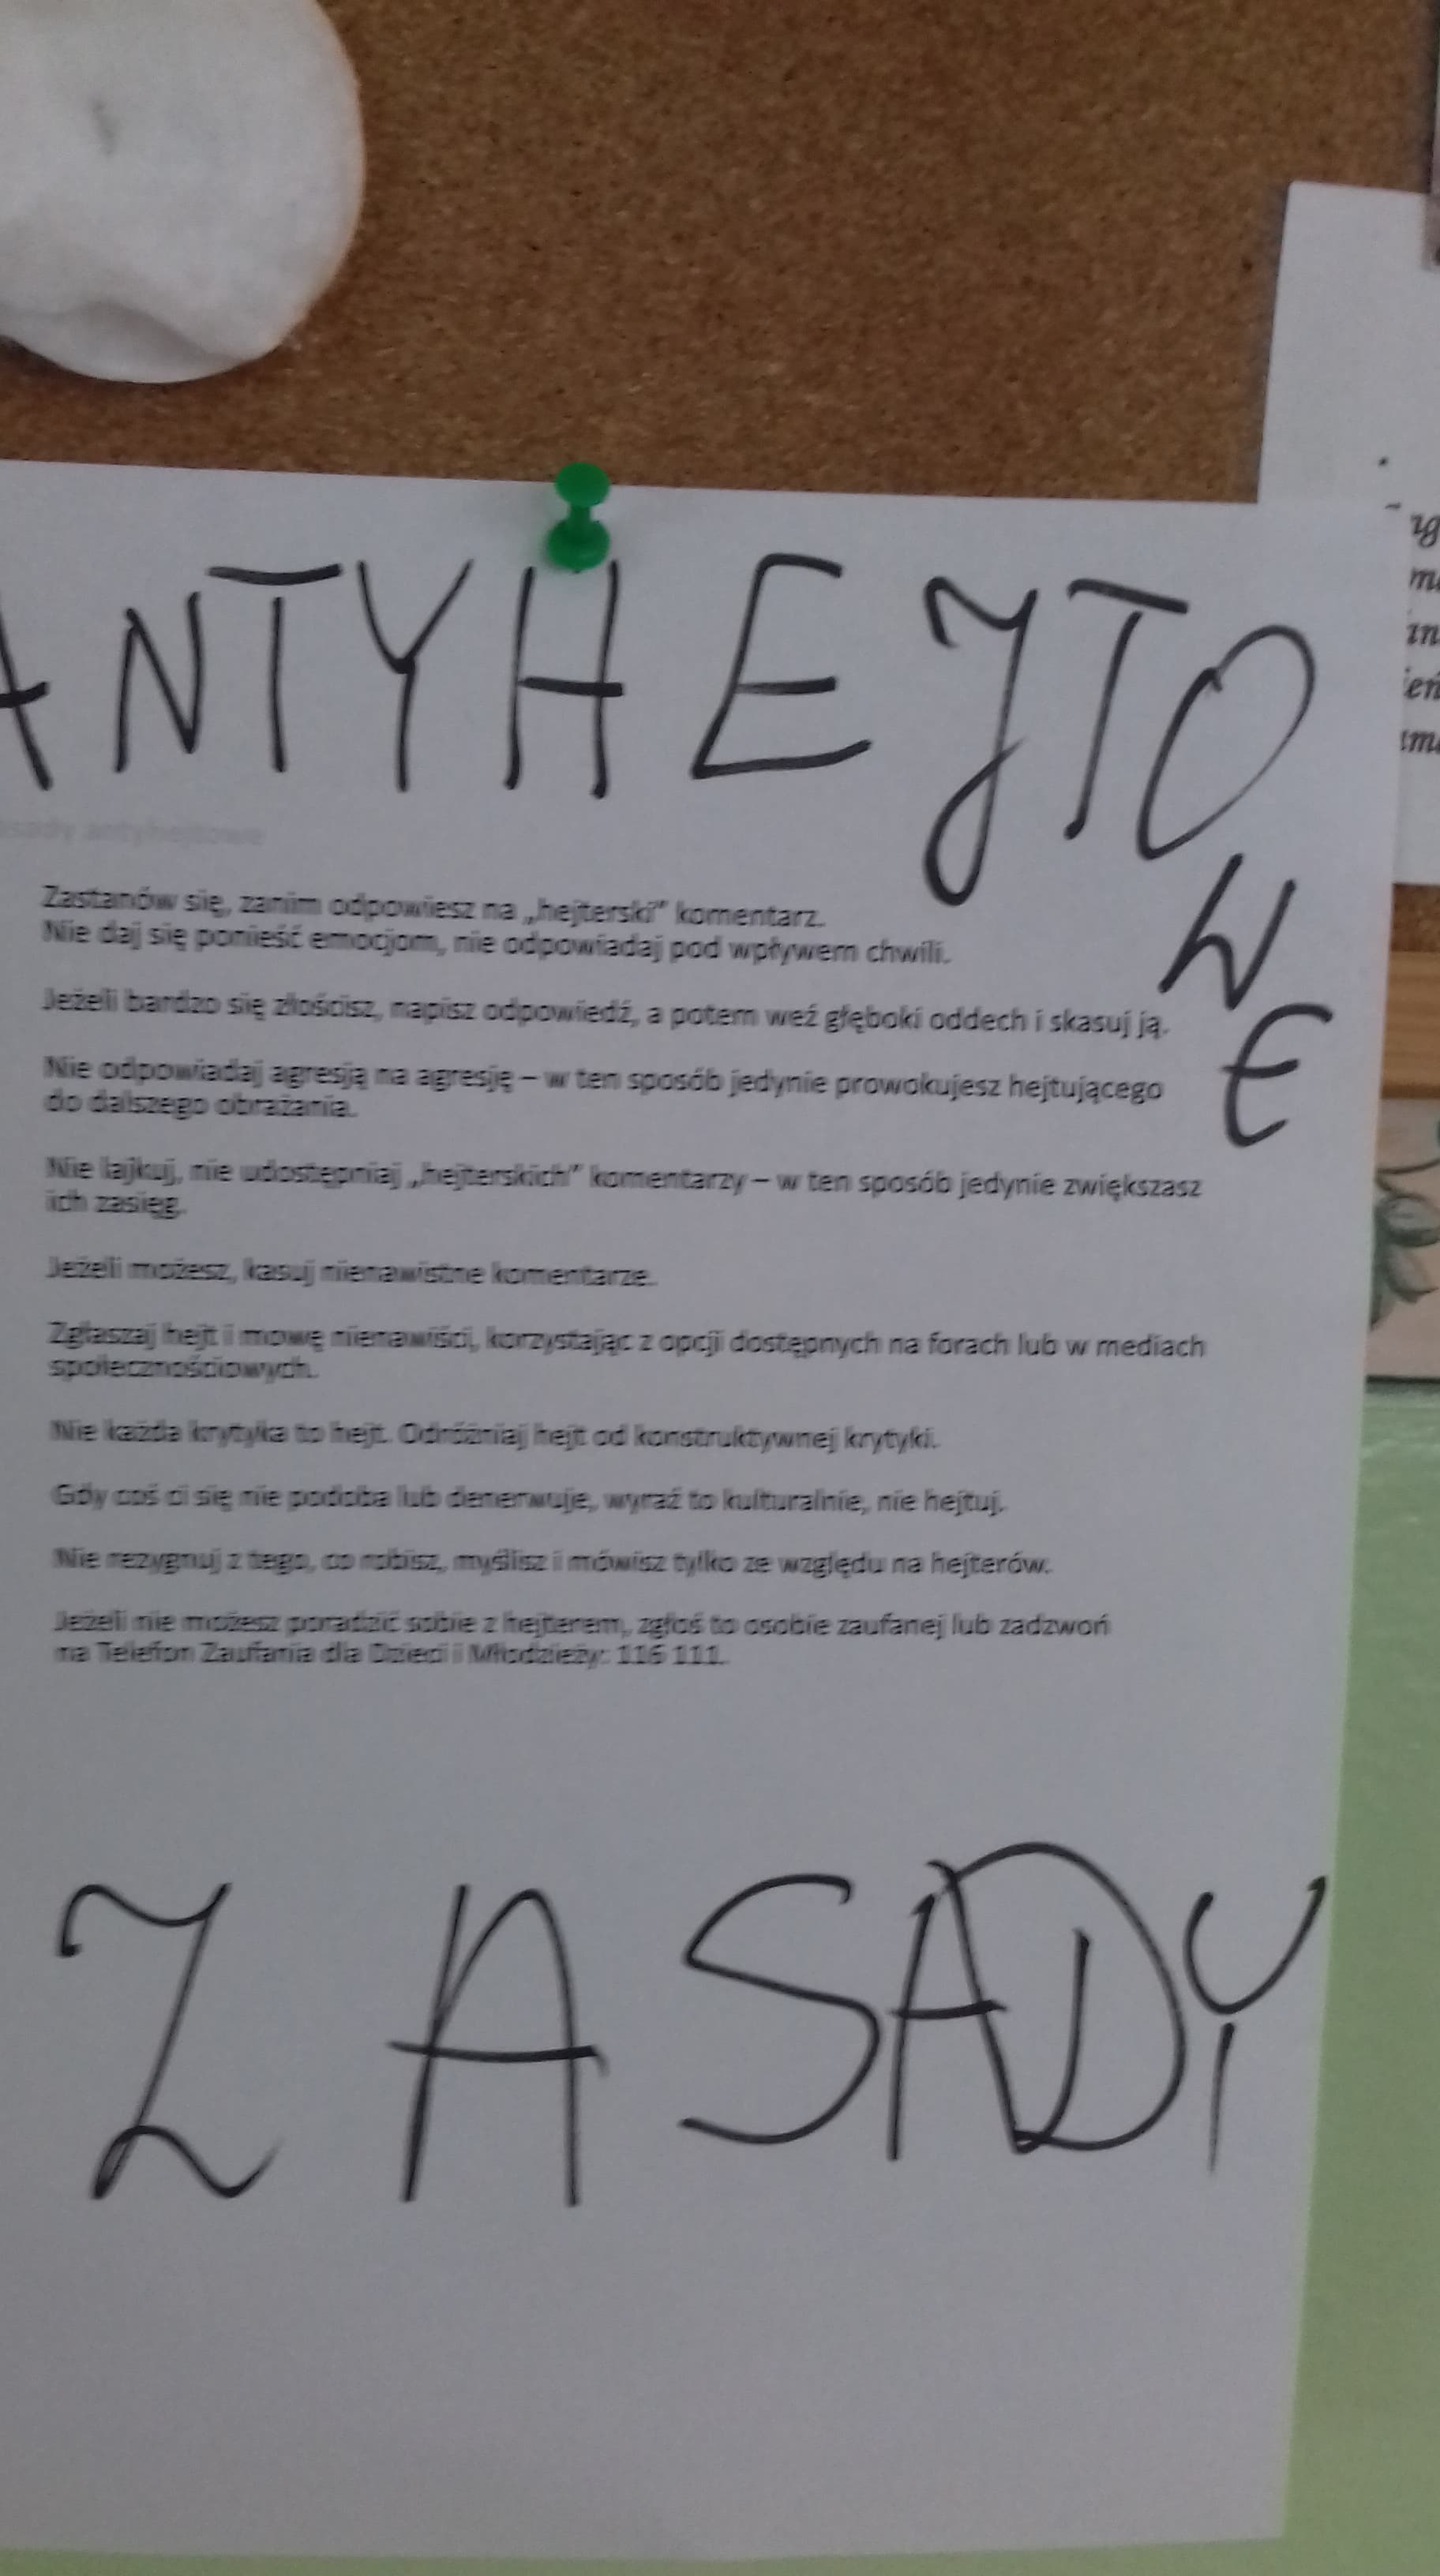 ANTYHEJTOWE
antyhejtowe
Zastanów się, zanim odpowiesz na „hejterski” komentarz.
Nie daj się ponieść emocjom, nie odpowiadaj pod wpływem chwili.
Jeżeli bardzo się złościsz, napisz odpowiedź, a potem weź głęboki oddech i skasuj ją.
Nie odpowiadaj agresją na agresję – w ten sposób jedynie prowokujesz hejtującego
do dalszego obrażania.
Nie lajkuj, nie udostępniaj „hejterskich” komentarzy – w ten sposób jedynie zwiększasz
ich zasięg.
Jeżeli możesz, kasuj nienawistne komentarze.
Zgłaszaj hejt i mowę nienawiści, korzystając z opcji dostępnych na forach lub w mediach
społecznościowych.
Nie każda krytyka to hejt. Odróżniaj hejt od konstruktywnej krytyki.
Gdy coś ci się nie podoba lub denerwuje, wyraź to kulturalnie, nie hejtuj.
Nie rezygnuj z tego, co robisz, myślisz i mówisz tylko ze względu na hejterów.
Jeżeli nie możesz poradzić sobie z hejterem, zgłoś to osobie zaufanej lub zadzwoń
na Telefon Zaufania dla Dzieci i Młodzieży: 116 111.
ZASADY